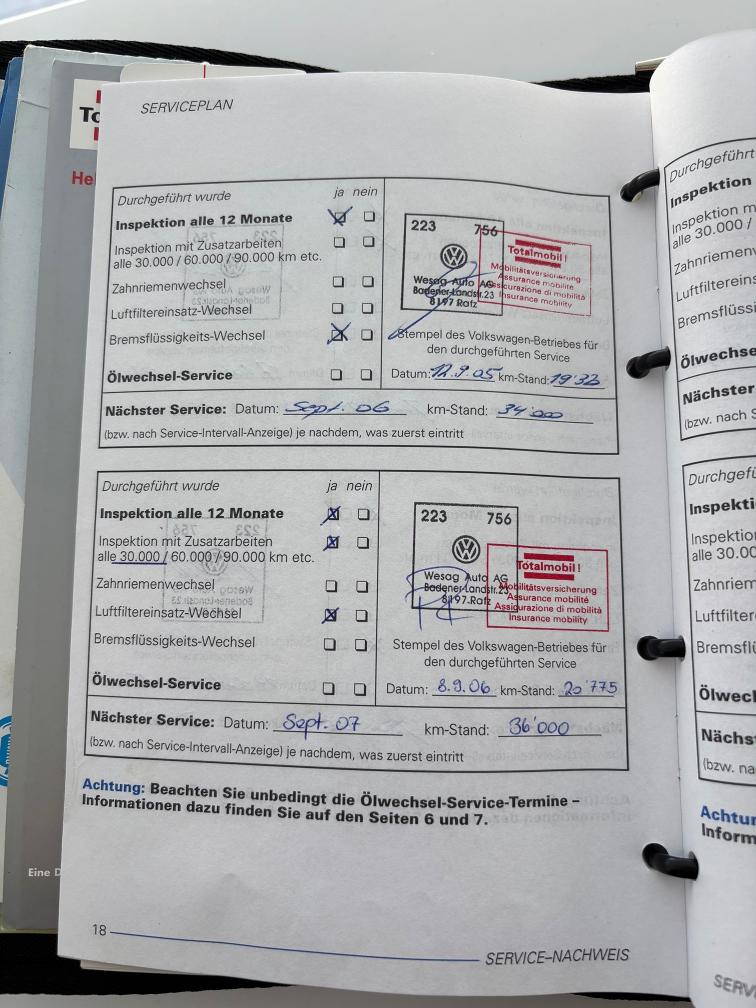 SERVICEPLAN
Durchgeführt wurde ja nein
Inspektion alle 12 Monate
Inspektion mit Zusatzarbeiten
alle 30.000 / 60.000 / 90.000 km etc.
Zahnriemenwechsel
Luftfiltereinsatz-Wechsel
Bremsflüssigkeits-Wechsel
Ölwechsel-Service
223 756
Wesag Auto AG
Badener-Landstr.23
8197 Rafz
Totalmobil!
Mobilitätsversicherung
Assurance mobilité
Assicurazione di mobilità
Insurance mobility
Stempel des Volkswagen-Betriebes für
den durchgeführten Service
Datum: 12.9.05 km-Stand:
Nächster Service: Datum: Sept. 06 km-Stand: 34'000
(bzw. nach Service-Intervall-Anzeige) je nachdem, was zuerst eintritt
Durchgeführt wurde ja nein
Inspektion alle 12 Monate
Inspektion mit Zusatzarbeiten
alle 30.000 / 60.000 / 90.000 km etc.
Zahnriemenwechsel
Luftfiltereinsatz-Wechsel
Bremsflüssigkeits-Wechsel
Ölwechsel-Service
223 756
Wesag Auto AG
Badener-Landstr.23
8197 Rafz
Totalmobil!
Mobilitätsversicherung
Assurance mobilité
Assicurazione di mobilità
Insurance mobility
Stempel des Volkswagen-Betriebes für
den durchgeführten Service
Datum: 8.9.06 km-Stand: 20'775
Nächster Service: Datum: Sept. 07 km-Stand: 36'000
(bzw. nach Service-Intervall-Anzeige) je nachdem, was zuerst eintritt
Achtung: Beachten Sie unbedingt die Ölwechsel-Service-Termine –
Informationen dazu finden Sie auf den Seiten 6 und 7.
18
SERVICE–NACHWEIS
Durchgeführt
Inspektion
alle 30.000 /
Ölwechse
Nächster
Eine D